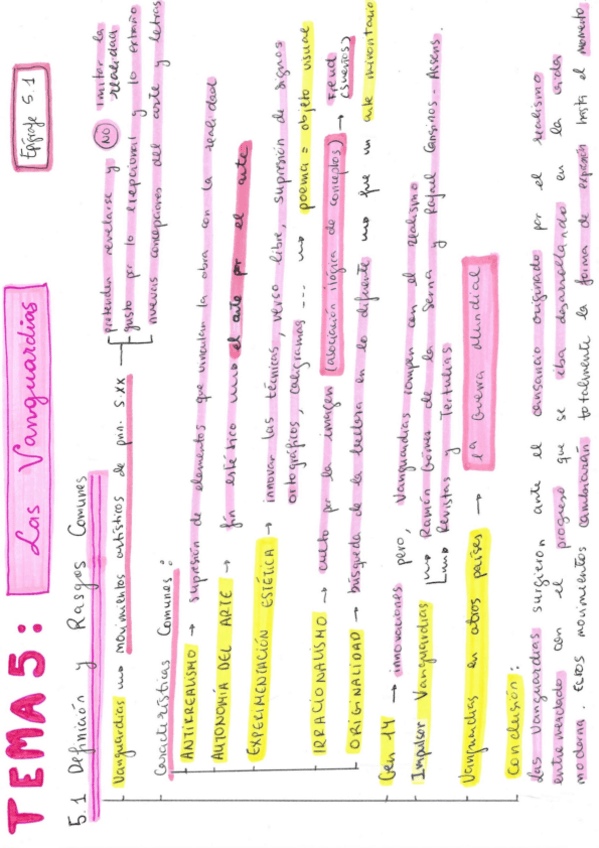 TEMA 5: Las Vanguardias Epígrafe 5.1
5.1 Definición y Rasgos Comunes
Vanguardias → movimientos artísticos de prin. S.XX
pretenden revelarse y NO imitar la realidad
gusto por lo excepcional y lo extraño
nuevas concepciones del arte y letras
Características Comunes:
ANTIRREALISMO → supresión de elementos que vinculan la obra con la realidad
AUTONOMÍA DEL ARTE → fin estético → el arte por el arte
EXPERIMENTACIÓN ESTÉTICA → innovar las técnicas, verso libre, supresión de signos
ortográficos, caligramas --- → poema = objeto visual
IRRACIONALISMO → culto por la imagen (asociación ilógica de conceptos) → Freud (sueños)
ORIGINALIDAD → búsqueda de la belleza en lo diferente → fue un arte minoritario
Gen 14 → innovaciones pero, Vanguardias rompen con el realismo
Impulsor Vanguardias → Ramón Gómez de la Serna y Rafael Cansinos-Assens.
→ Revistas y Tertulias
Vanguardias en otros países → 1ª Guerra Mundial
Conclusión:
Las Vanguardias surgieron ante el cansancio originado por el realismo
entremezclado con el progreso que se iba desarrollando en la vida
moderna. Estos movimientos cambiarán totalmente la forma de expresión hasta el momento.